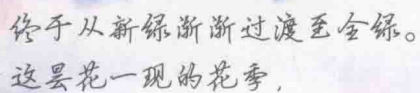 终于从新绿渐渐过渡至全绿。
这昙花一现的花季,